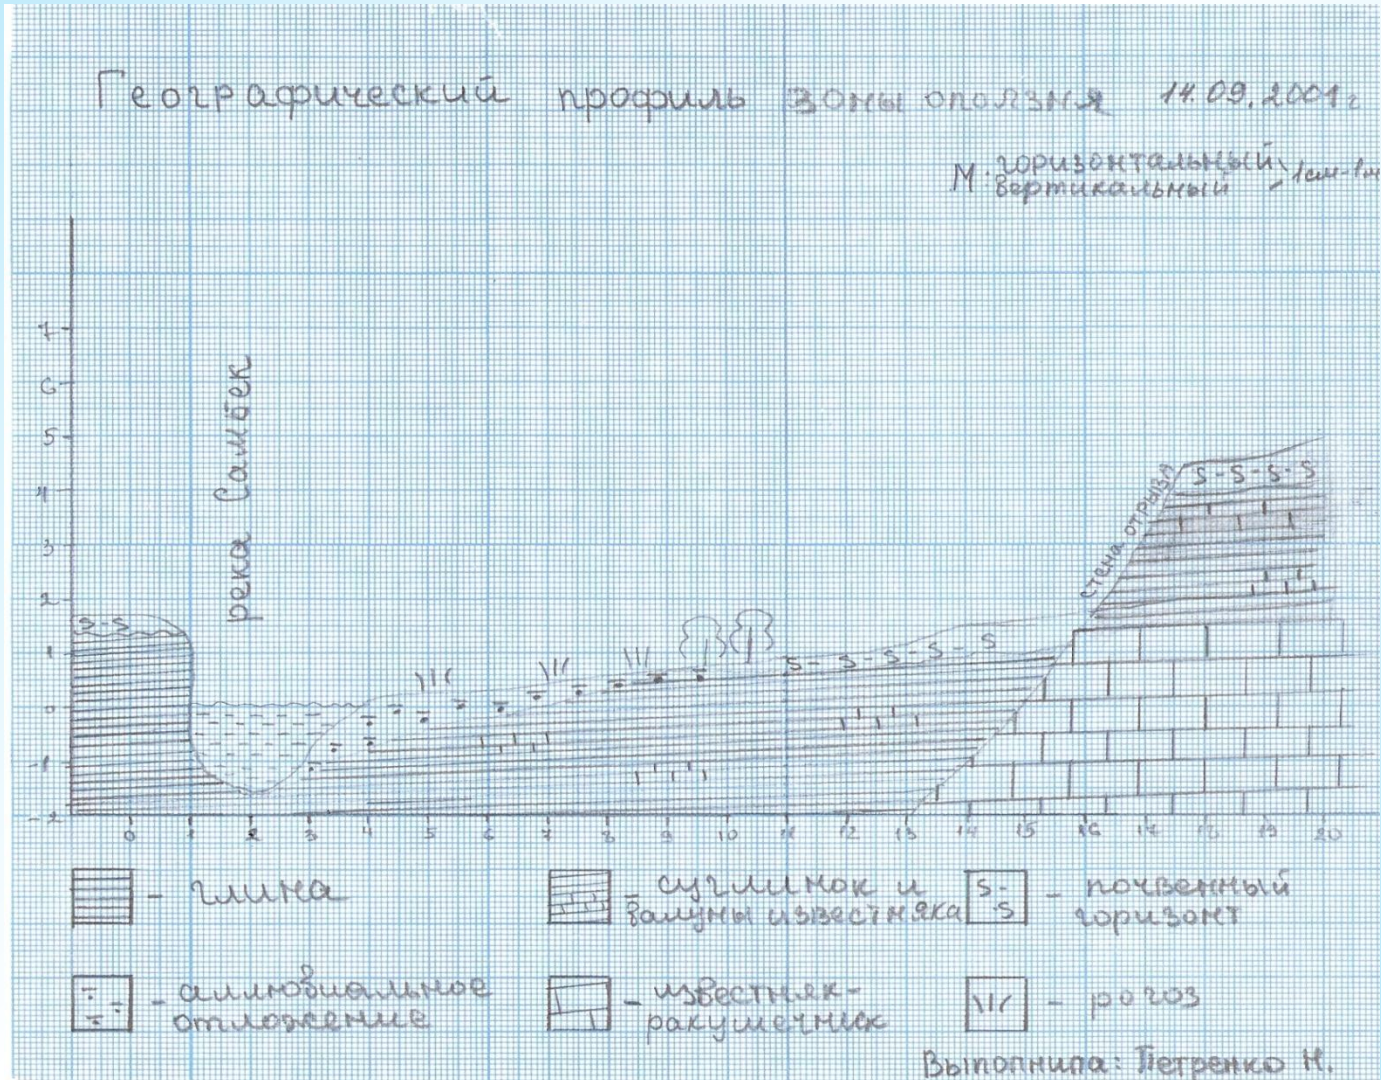 Географический профиль зоны оползня 14.09.2001г
М: горизонтальный
вертикальный 1см-1м
7
6
5
4
3
2
1
0
-1
-2
река Самбек
стена отрыва
S-S
S-S-S-S
S-S-S-S-S
0 1 2 3 4 5 6 7 8 9 10 11 12 13 14 15 16 17 18 19 20
- глина
- суглинок и
валуны известняка
S-
S
- почвенный
горизонт
- аллювиальное
отложение
- известняк-
ракушечник
- рогоз
Выполнила: Петренко Н.